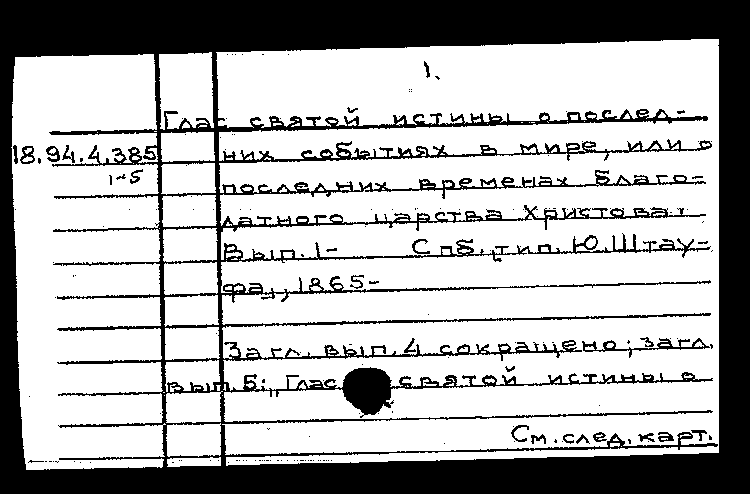 1.
Глас святой истины о послед-
18.94.4.385 них событиях в мире, или о
1-5 последних временах благо-
датного царства Христова.
Вып. 1- Спб., тип. Ю. Штау-
фа, 1865-
Загл. вып. 4 сокращено; загл.
вып. 5: „Глас святой истины о
См. след. карт.